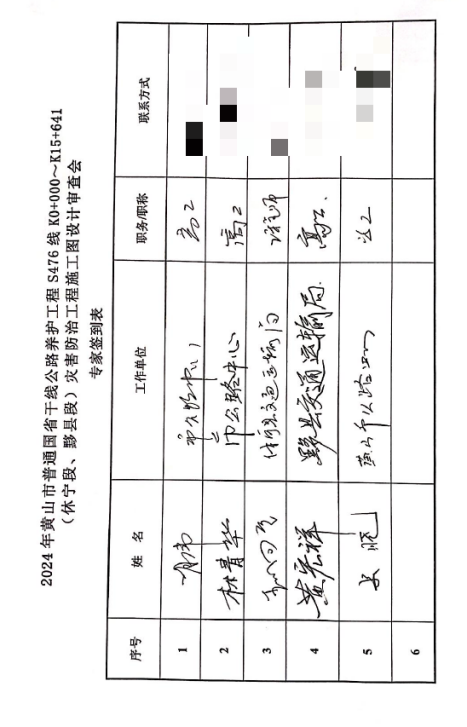 2024年黄山市普通国省干线公路养护工程S476线K0+000～K15+641
（休宁段、黟县段）灾害防治工程施工图设计审查会
专家签到表
序号 姓 名 工作单位 职务/职称 联系方式
1 高工
2 林青华 市公路中心 高工
3 休宁县交通运输局 工程师
4 黄宏祥 黟县交通运输局 高工
5 黄山市公路 高工
6